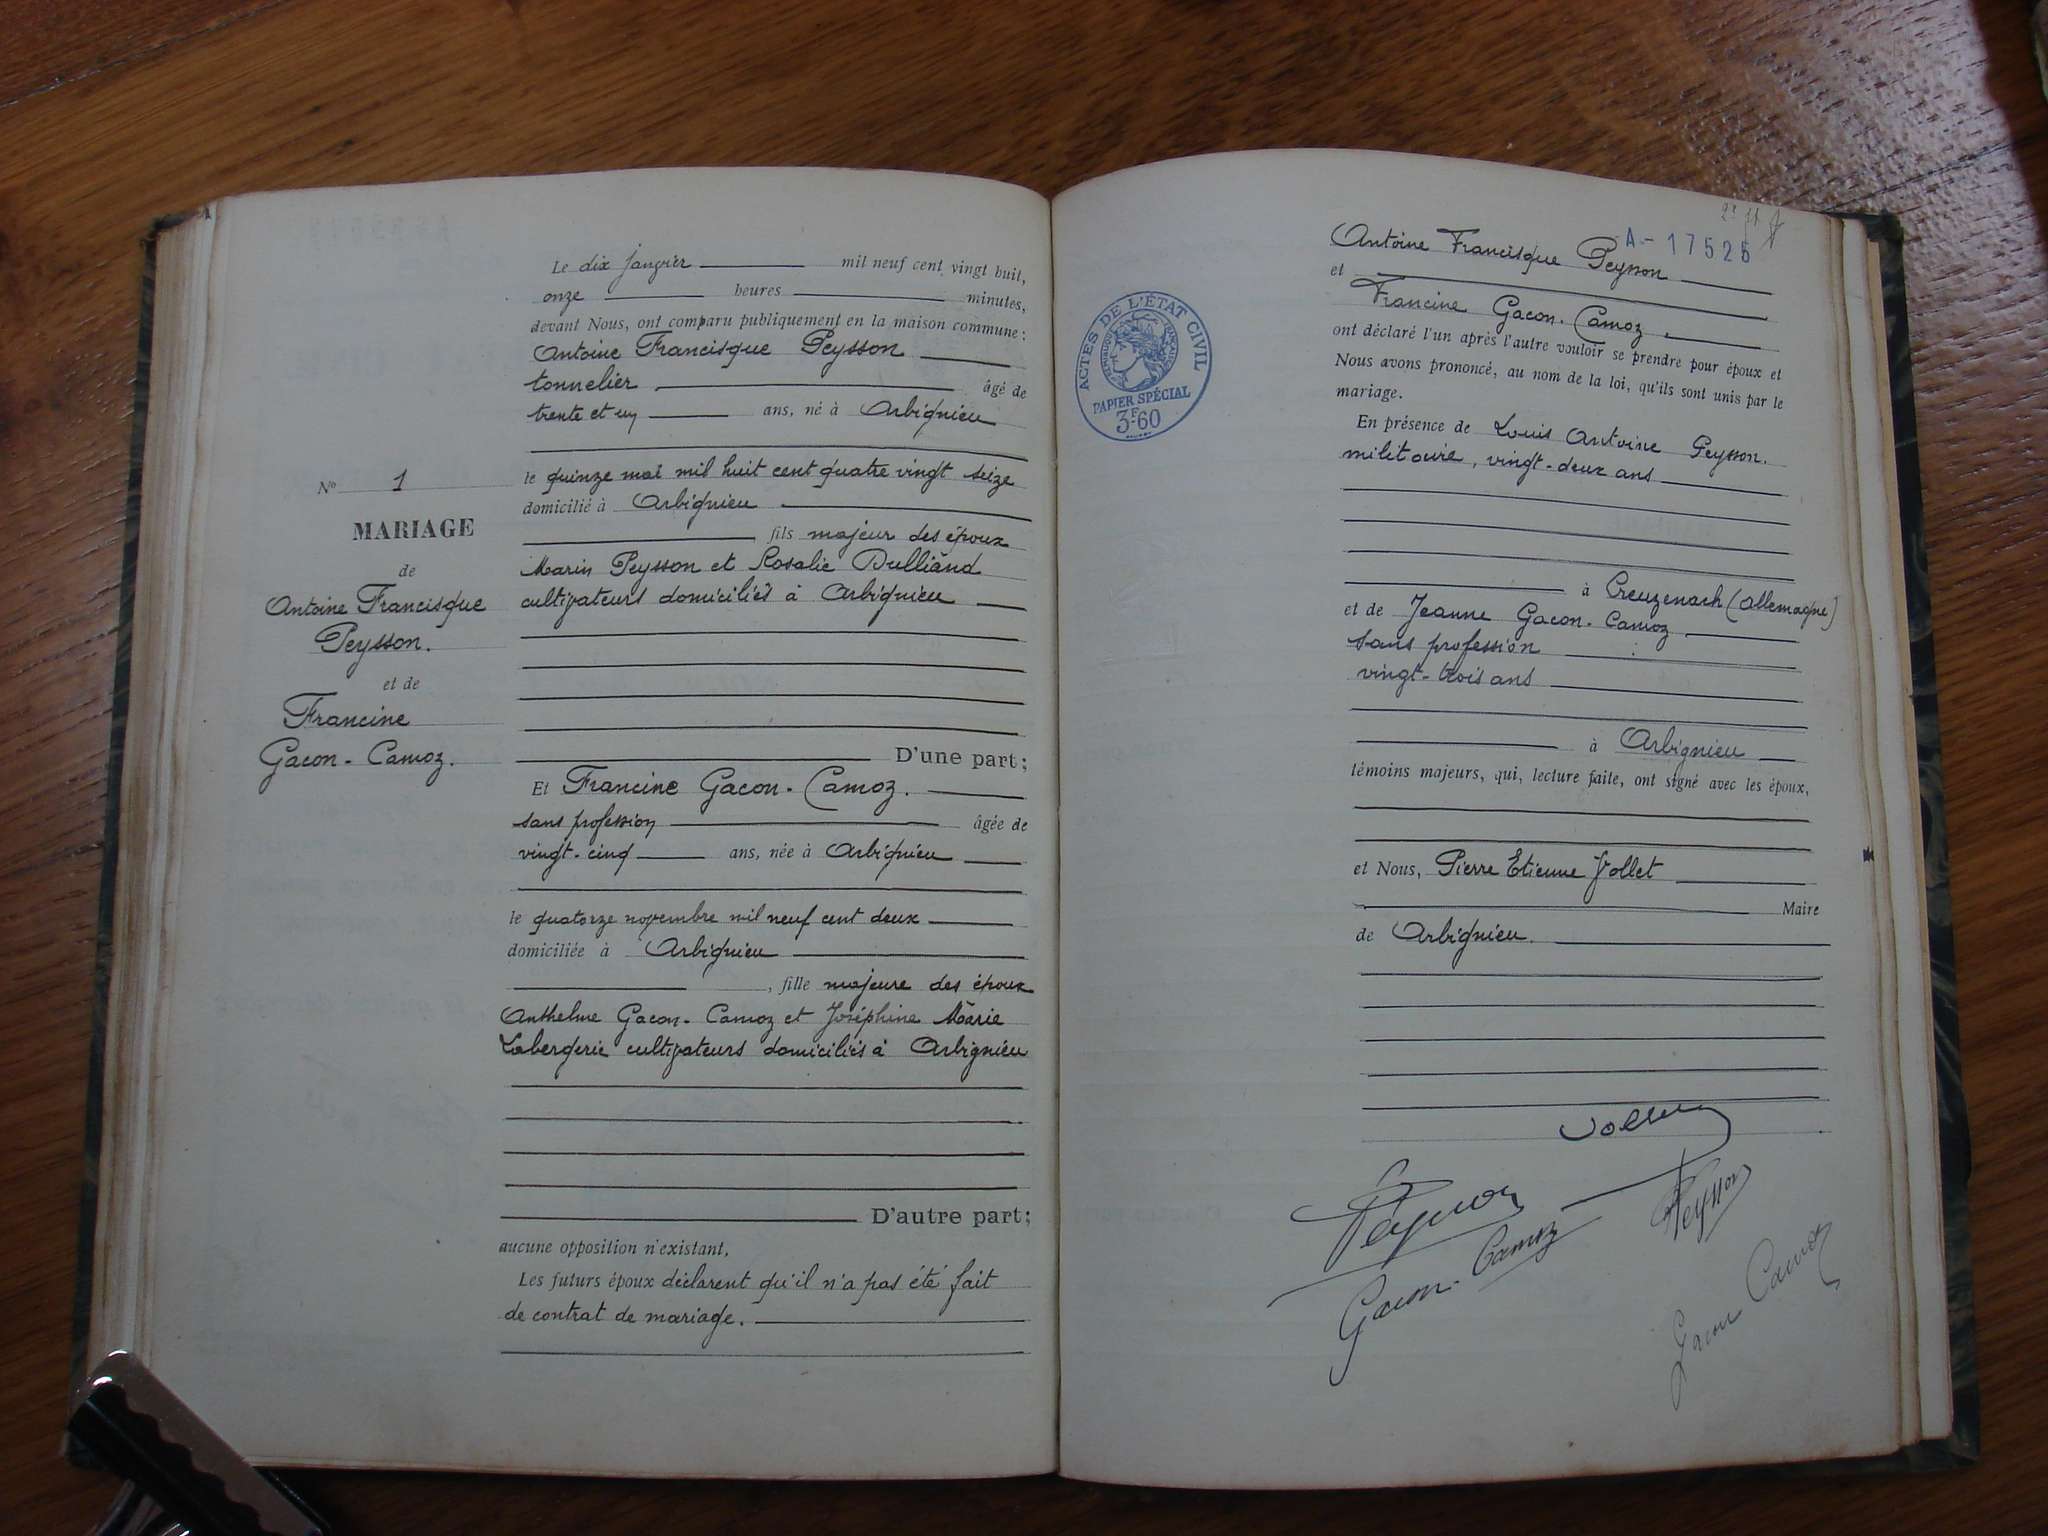 Nº 1
MARIAGE
de
Antoine Francisque
Peysson.
et de
Francine
Gacon-Camoz.
Le dix janvier mil neuf cent vingt huit,
onze heures minutes,
devant Nous, ont comparu publiquement en la maison commune :
Antoine Francisque Peysson
tonnelier âgé de
trente et un ans, né à Arbignieu
le quinze mai mil huit cent quatre vingt seize
domicilié à Arbignieu
fils majeur des époux
Marin Peysson et Rosalie Dulliand
cultivateurs domiciliés à Arbignieu
D'une part;
Et Francine Gacon-Camoz.
sans profession âgée de
vingt-cinq ans, née à Arbignieu
le quatorze novembre mil neuf cent deux
domiciliée à Arbignieu
, fille majeure des époux
Anthelme Gacon-Camoz et Joséphine Marie
Labergerie cultivateurs domiciliés à Arbignieu
D'autre part;
aucune opposition n'existant,
Les futurs époux déclarent qu'il n'a pas été fait
de contrat de mariage.
A-17525
ACTES DE L'ÉTAT CIVIL
PAPIER SPÉCIAL
3F60
Antoine Francisque Peysson
et
Francine Gacon-Camoz.
ont déclaré l'un après l'autre vouloir se prendre pour époux et
Nous avons prononcé, au nom de la loi, qu'ils sont unis par le
mariage.
En présence de Louis Antoine Peysson.
militaire, vingt-deux ans
à Creuzenach (Allemagne)
et de Jeanne Gacon-Camoz
sans profession
vingt-trois ans
à Arbignieu
témoins majeurs, qui, lecture faite, ont signé avec les époux,
et Nous, Pierre Etienne Vollet
Maire
de Arbignieu.
Vollet
Peysson
Peysson
Gacon-Camoz
Gacon Camoz